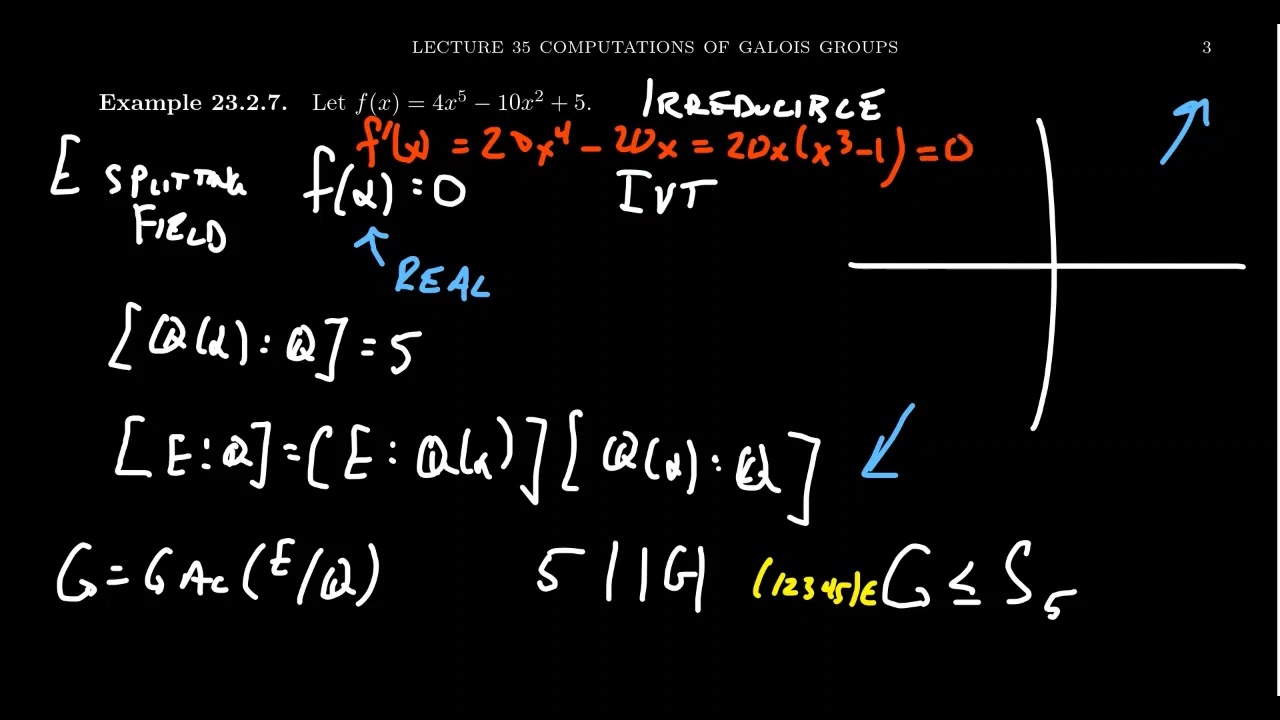 LECTURE 35 COMPUTATIONS OF GALOIS GROUPS 3
Example 23.2.7. Let f(x) = 4x⁵ − 10x² + 5. IRREDUCIBLE
f'(x) = 20x⁴ − 20x = 20x(x³−1) = 0
E SPLITTING FIELD
f(α) = 0 IVT
REAL
[Q(α) : Q] = 5
[E : Q] = [E : Q(α)] [Q(α) : Q]
G = GAL(E/Q) 5 | |G| (12345) ∈ G ≤ S₅